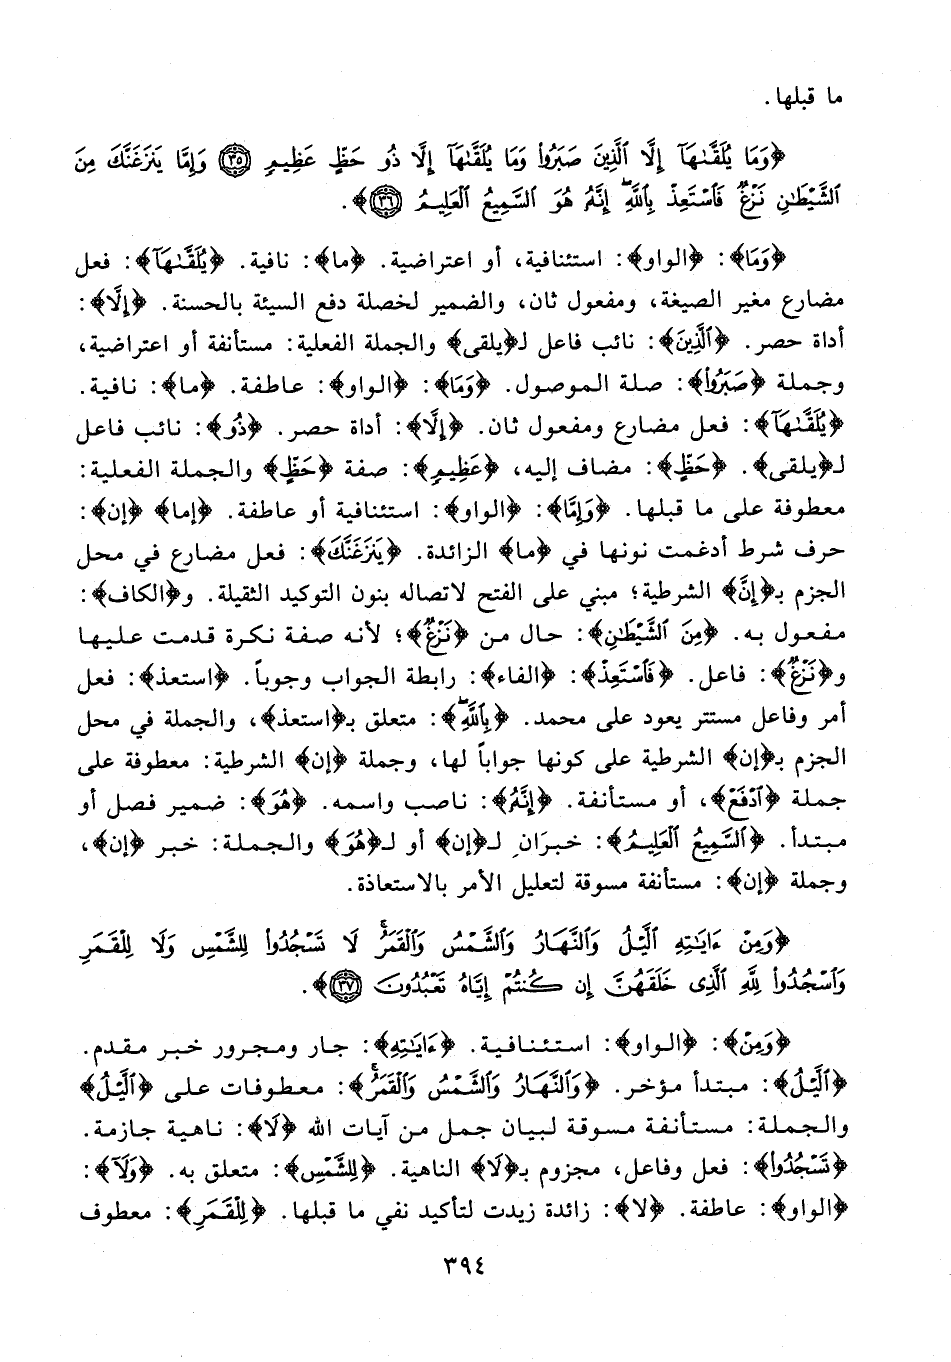 ما قبلها.
﴿وَمَا يُلَقَّىٰهَآ إِلَّا ٱلَّذِينَ صَبَرُوا۟ وَمَا يُلَقَّىٰهَآ إِلَّا ذُو حَظٍّ عَظِيمٍ ۝٣٥ وَإِمَّا يَنزَغَنَّكَ مِنَ
ٱلشَّيْطَٰنِ نَزْغٌ فَٱسْتَعِذْ بِٱللَّهِ ۖ إِنَّهُۥ هُوَ ٱلسَّمِيعُ ٱلْعَلِيمُ ۝٣٦﴾.
﴿وَمَا﴾: ﴿الواو﴾: استئنافية، أو اعتراضية. ﴿ما﴾: نافية. ﴿يُلَقَّىٰهَآ﴾: فعل
مضارع مغير الصيغة، ومفعول ثان، والضمير لخصلة دفع السيئة بالحسنة. ﴿إِلَّا﴾:
أداة حصر. ﴿ٱلَّذِينَ﴾: نائب فاعل لـ﴿يلقى﴾ والجملة الفعلية: مستأنفة أو اعتراضية،
وجملة ﴿صَبَرُوا۟﴾: صلة الموصول. ﴿وَمَا﴾: ﴿الواو﴾: عاطفة. ﴿ما﴾: نافية.
﴿يُلَقَّىٰهَآ﴾: فعل مضارع ومفعول ثان. ﴿إِلَّا﴾: أداة حصر. ﴿ذُو﴾: نائب فاعل
لـ﴿يلقى﴾. ﴿حَظٍّ﴾: مضاف إليه، ﴿عَظِيمٍ﴾: صفة ﴿حَظٍّ﴾ والجملة الفعلية:
معطوفة على ما قبلها. ﴿وَإِمَّا﴾: ﴿الواو﴾: استئنافية أو عاطفة. ﴿إما﴾ ﴿إن﴾:
حرف شرط أدغمت نونها في ﴿ما﴾ الزائدة. ﴿يَنزَغَنَّكَ﴾: فعل مضارع في محل
الجزم بـ﴿إنَّ﴾ الشرطية؛ مبني على الفتح لاتصاله بنون التوكيد الثقيلة. و﴿الكاف﴾:
مفعول به. ﴿مِنَ ٱلشَّيْطَٰنِ﴾: حال من ﴿نَزْغٌ﴾؛ لأنه صفة نكرة قدمت عليها
و﴿نَزْغٌ﴾: فاعل. ﴿فَٱسْتَعِذْ﴾: ﴿الفاء﴾: رابطة الجواب وجوباً. ﴿استعذ﴾: فعل
أمر وفاعل مستتر يعود على محمد. ﴿بِٱللَّهِ ۖ﴾: متعلق بـ﴿استعذ﴾، والجملة في محل
الجزم بـ﴿إن﴾ الشرطية على كونها جواباً لها، وجملة ﴿إن﴾ الشرطية: معطوفة على
جملة ﴿ٱدْفَعْ﴾، أو مستأنفة. ﴿إِنَّهُۥ﴾: ناصب واسمه. ﴿هُوَ﴾: ضمير فصل أو
مبتدأ. ﴿ٱلسَّمِيعُ ٱلْعَلِيمُ﴾: خبرَانِ لـ﴿إن﴾ أو لـ﴿هُوَ﴾ والجملة: خبر ﴿إن﴾،
وجملة ﴿إن﴾: مستأنفة مسوقة لتعليل الأمر بالاستعاذة.
﴿وَمِنْ ءَايَٰتِهِ ٱلَّيْلُ وَٱلنَّهَارُ وَٱلشَّمْسُ وَٱلْقَمَرُ ۚ لَا تَسْجُدُوا۟ لِلشَّمْسِ وَلَا لِلْقَمَرِ
وَٱسْجُدُوا۟ لِلَّهِ ٱلَّذِى خَلَقَهُنَّ إِن كُنتُمْ إِيَّاهُ تَعْبُدُونَ ۝٣٧﴾.
﴿وَمِنْ﴾: ﴿الواو﴾: استئنافية. ﴿ءَايَٰتِهِ﴾: جار ومجرور خبر مقدم.
﴿ٱلَّيْلُ﴾: مبتدأ مؤخر. ﴿وَٱلنَّهَارُ وَٱلشَّمْسُ وَٱلْقَمَرُ ۚ﴾: معطوفات على ﴿ٱلَّيْلُ﴾
والجملة: مستأنفة مسوقة لبيان جمل من آيات الله ﴿لَا﴾: ناهية جازمة.
﴿تَسْجُدُوا۟﴾: فعل وفاعل، مجزوم بـ﴿لَا﴾ الناهية. ﴿لِلشَّمْسِ﴾: متعلق به. ﴿وَلَآ﴾:
﴿الواو﴾: عاطفة. ﴿لا﴾: زائدة زيدت لتأكيد نفي ما قبلها. ﴿لِلْقَمَرِ﴾: معطوف
٣٩٤